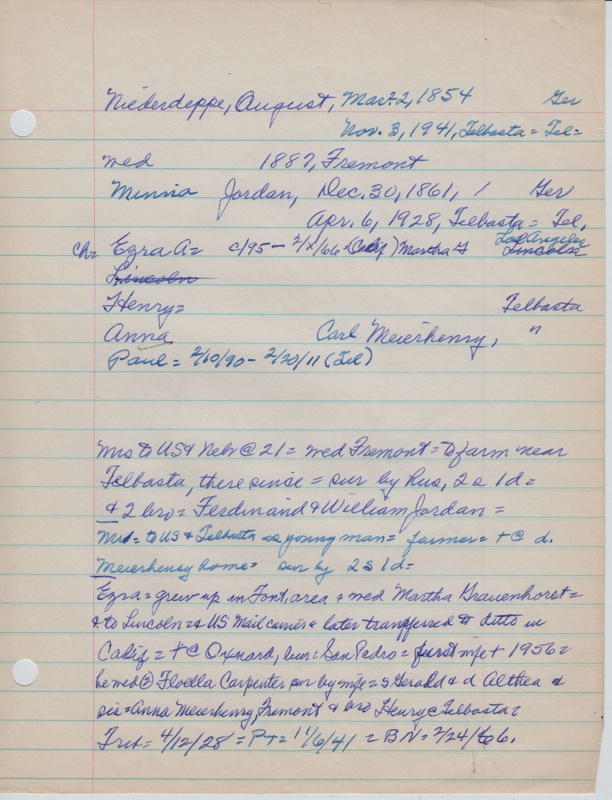 Niederdeppe, August, Mar. 2, 1854 Ger
Nov. 3, 1941, Telbasta = Tel =
med 1887, Fremont
Minnia Jordan, Dec. 30, 1861, / Ger
Apr. 6, 1928, Telbasta = Tel,
Los Angeles
ch= Ezra A= c/95 - 2/2/66 (Calif) Martha G Lincoln
Lincoln
Henry= Telbasta
Anna Carl Meierhenry, "
Paul = 2/10/90 - 2/20/11 (Tel)
Mrs to US & Nebr @ 21 = med Fremont = to farm near
Telbasta, there since = sur by hus, 2 s 1 d =
& 2 bro = Ferdinand & William Jordan =
Mr = to US & Telbasta as young man = farmer = + @ d.
Meierhenry home = sur by 2 s 1 d =
Ezra = grew up in Font. area & med Martha Grauenhorst =
& to Lincoln = & US Mail carrier & later transferred to ditto in
Calif = + @ Oxnard, bur = San Pedro = first wife + 1956 =
he med (2) Floella Carpenter sur by wife = s Gerald & d Althea &
sis = Anna Meierhenry, Fremont & bro Henry @ Telbasta =
Trib = 4/12/28 = P+ = 11/6/41 = BN = 2/24/66.